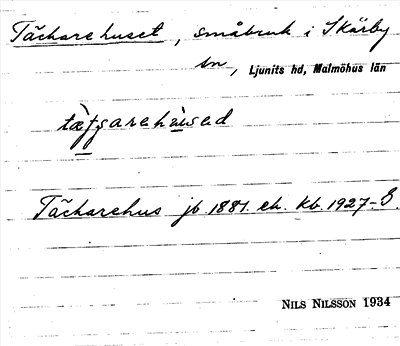 Täckarehuset, småbruk i Skårby
sn, Ljunits hd, Malmöhus län
Täckarehus jb. 1881. ek. kb. 1927-
NILS NILSSON 1934